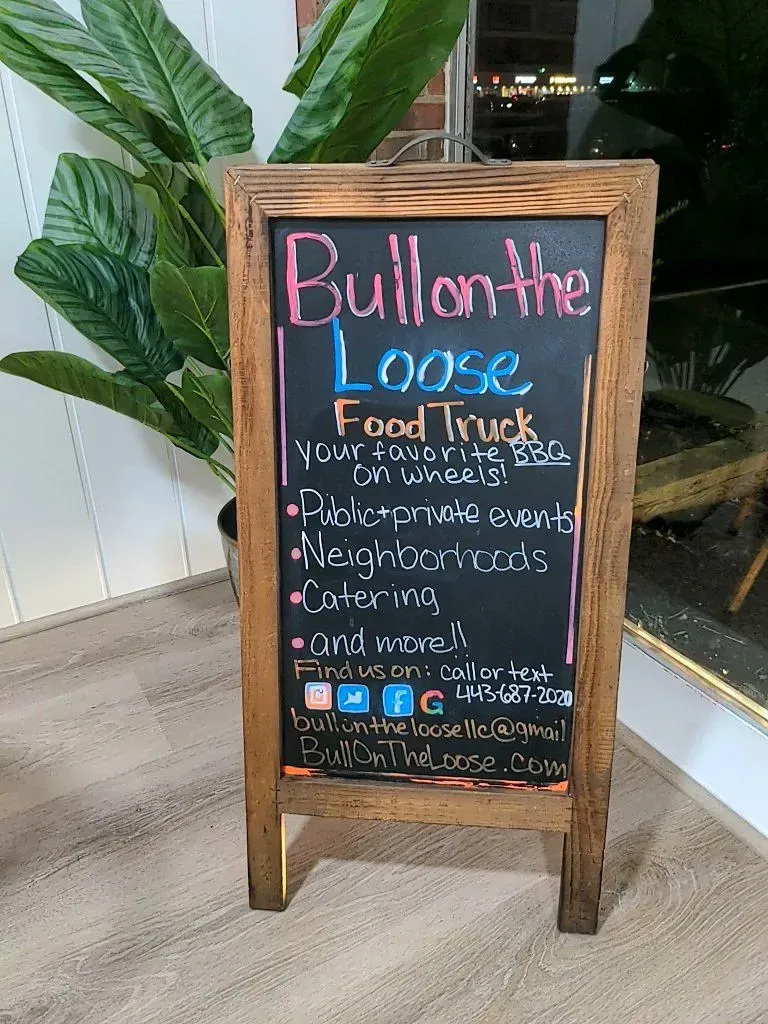 Bull on the
Loose
Food Truck
Your favorite BBQ
on wheels!
• Public + private events
• Neighborhoods
• Catering
• and more!!
Find us on: call or text
f G 443-687-2020
bullontheloosellc@gmail
BullOnTheLoose.com